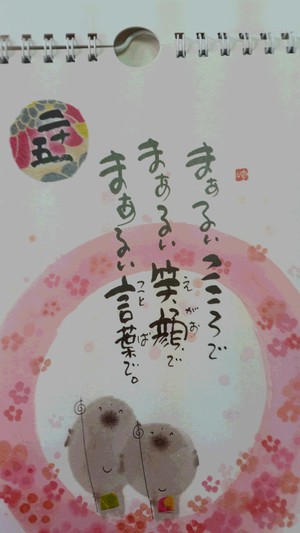 二十五
まぁるいこころで
まぁるい笑顔で
えがお
まぁるい言葉で。
ことば